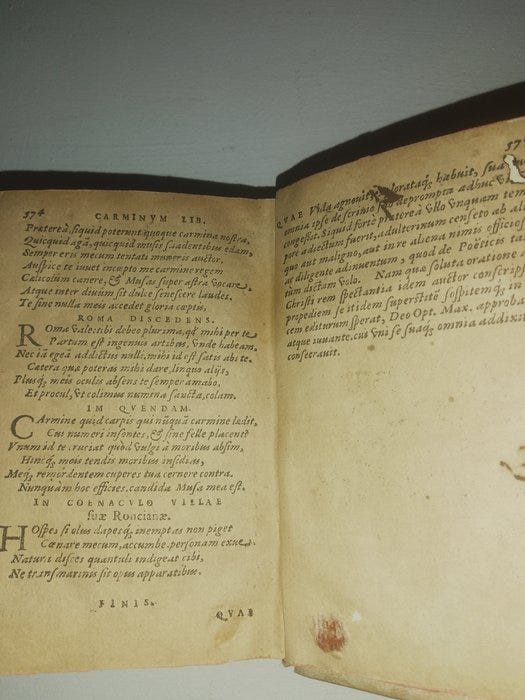 574 CARMINVM LIB.
Prætereà, siquid poterunt quoque carmina nostra,
Quicquid agā, quicquid musis suadentibus edam,
Semper eris mecum tentati muneris auctor.
Auspice te iuuet incœpto me carmine regem
Cælicolum canere, & Musas super astra vocare,
Atque inter diuûm sit dulce senescere laudes.
Te sine nulla meis accedet gloria cœptis,
ROMA DISCEDENS.
ROma vale: tibi debeo plurima, qđ mihi per te
Partum est ingenuis artibus, vnde habeam,
Nec iā egeā addictus nulli, mihi id est satis abs te.
Cætera quæ poteras mihi dare, linquo alijs,
Plusq́, meis oculis absens te semper amabo,
Et procul, vt colimus numina sancta, colam.
IM QVENDAM.
CArmine quid carpis qui nūquā carmine lædit,
Cui numeri insontes, & sine felle placent?
Vnum id te cruciat quòd vulgi à moribus absim,
Hincq́, meis tendis moribus insidias,
Meq́, remordentem cuperes tua cernere contra.
Nunquàm hoc efficies, candida Musa mea est.
IN COENACVLO VILLAE
suæ Roncianæ.
HOspes si olus dapesq́, inemptas non piget
Cœnare mecum, accumbe: personam exue,
Natura disces quantuli indigeat cibi,
Ne transmarinis sit opus apparatibus.
FINIS.
QVAE
57
QVAE Vida agnouit, elaborataq́, habuit, sua
omnia ipse de scrinio suo deprompta adhuc
congessit. Siquid fortè prætereà vllo vnquam tem
pore adiectum fuerit, adulterinum censeto ab ali
quo aut maligno, aut in re aliena nimis officios
ac diligente adinuentum, quod de Poëticis ta
tùm dictum volo. Nam quæ soluta oratione a
Christi rem spectantia idem auctor conscrips
propediem se itidem superstite sospiteq́, in
cem editurum sperat, Deo Opt. Max. approba
atque iuuante, cui vni se suaq́, omnia addixit
consecrauit.